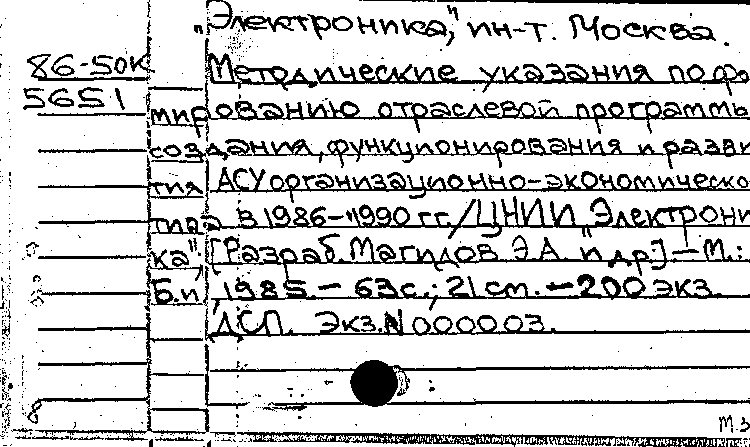 „Электроника," ин-т. Москва.
86-50К Методические указания по фо
5651 мированию отраслевой программы
создания, функционирования и разви
тия АСУ организационно-экономическо
типа в 1986-1990 гг. / ЦНИИ „Электрони
ка". [Разраб. Магидов Э.А. и др.] — М.:
Б.и., 1985. — 63 с.; 21 см. — 200 экз.
ДСП. Экз. N 000003.
8